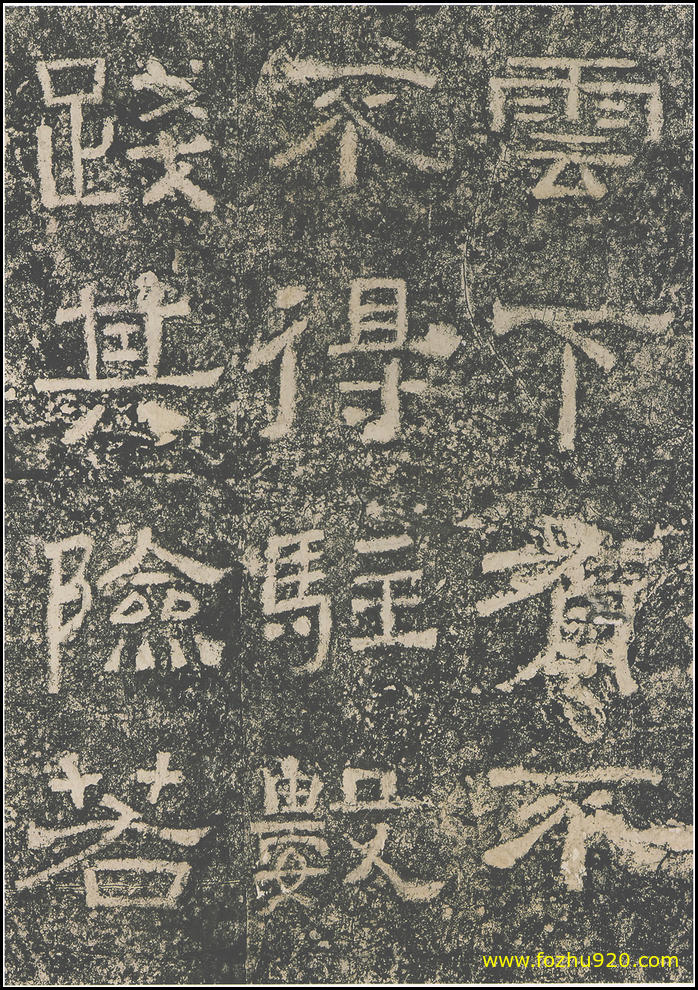 雲下有不
不得駐數
踐其險若
www.fozhu920.com